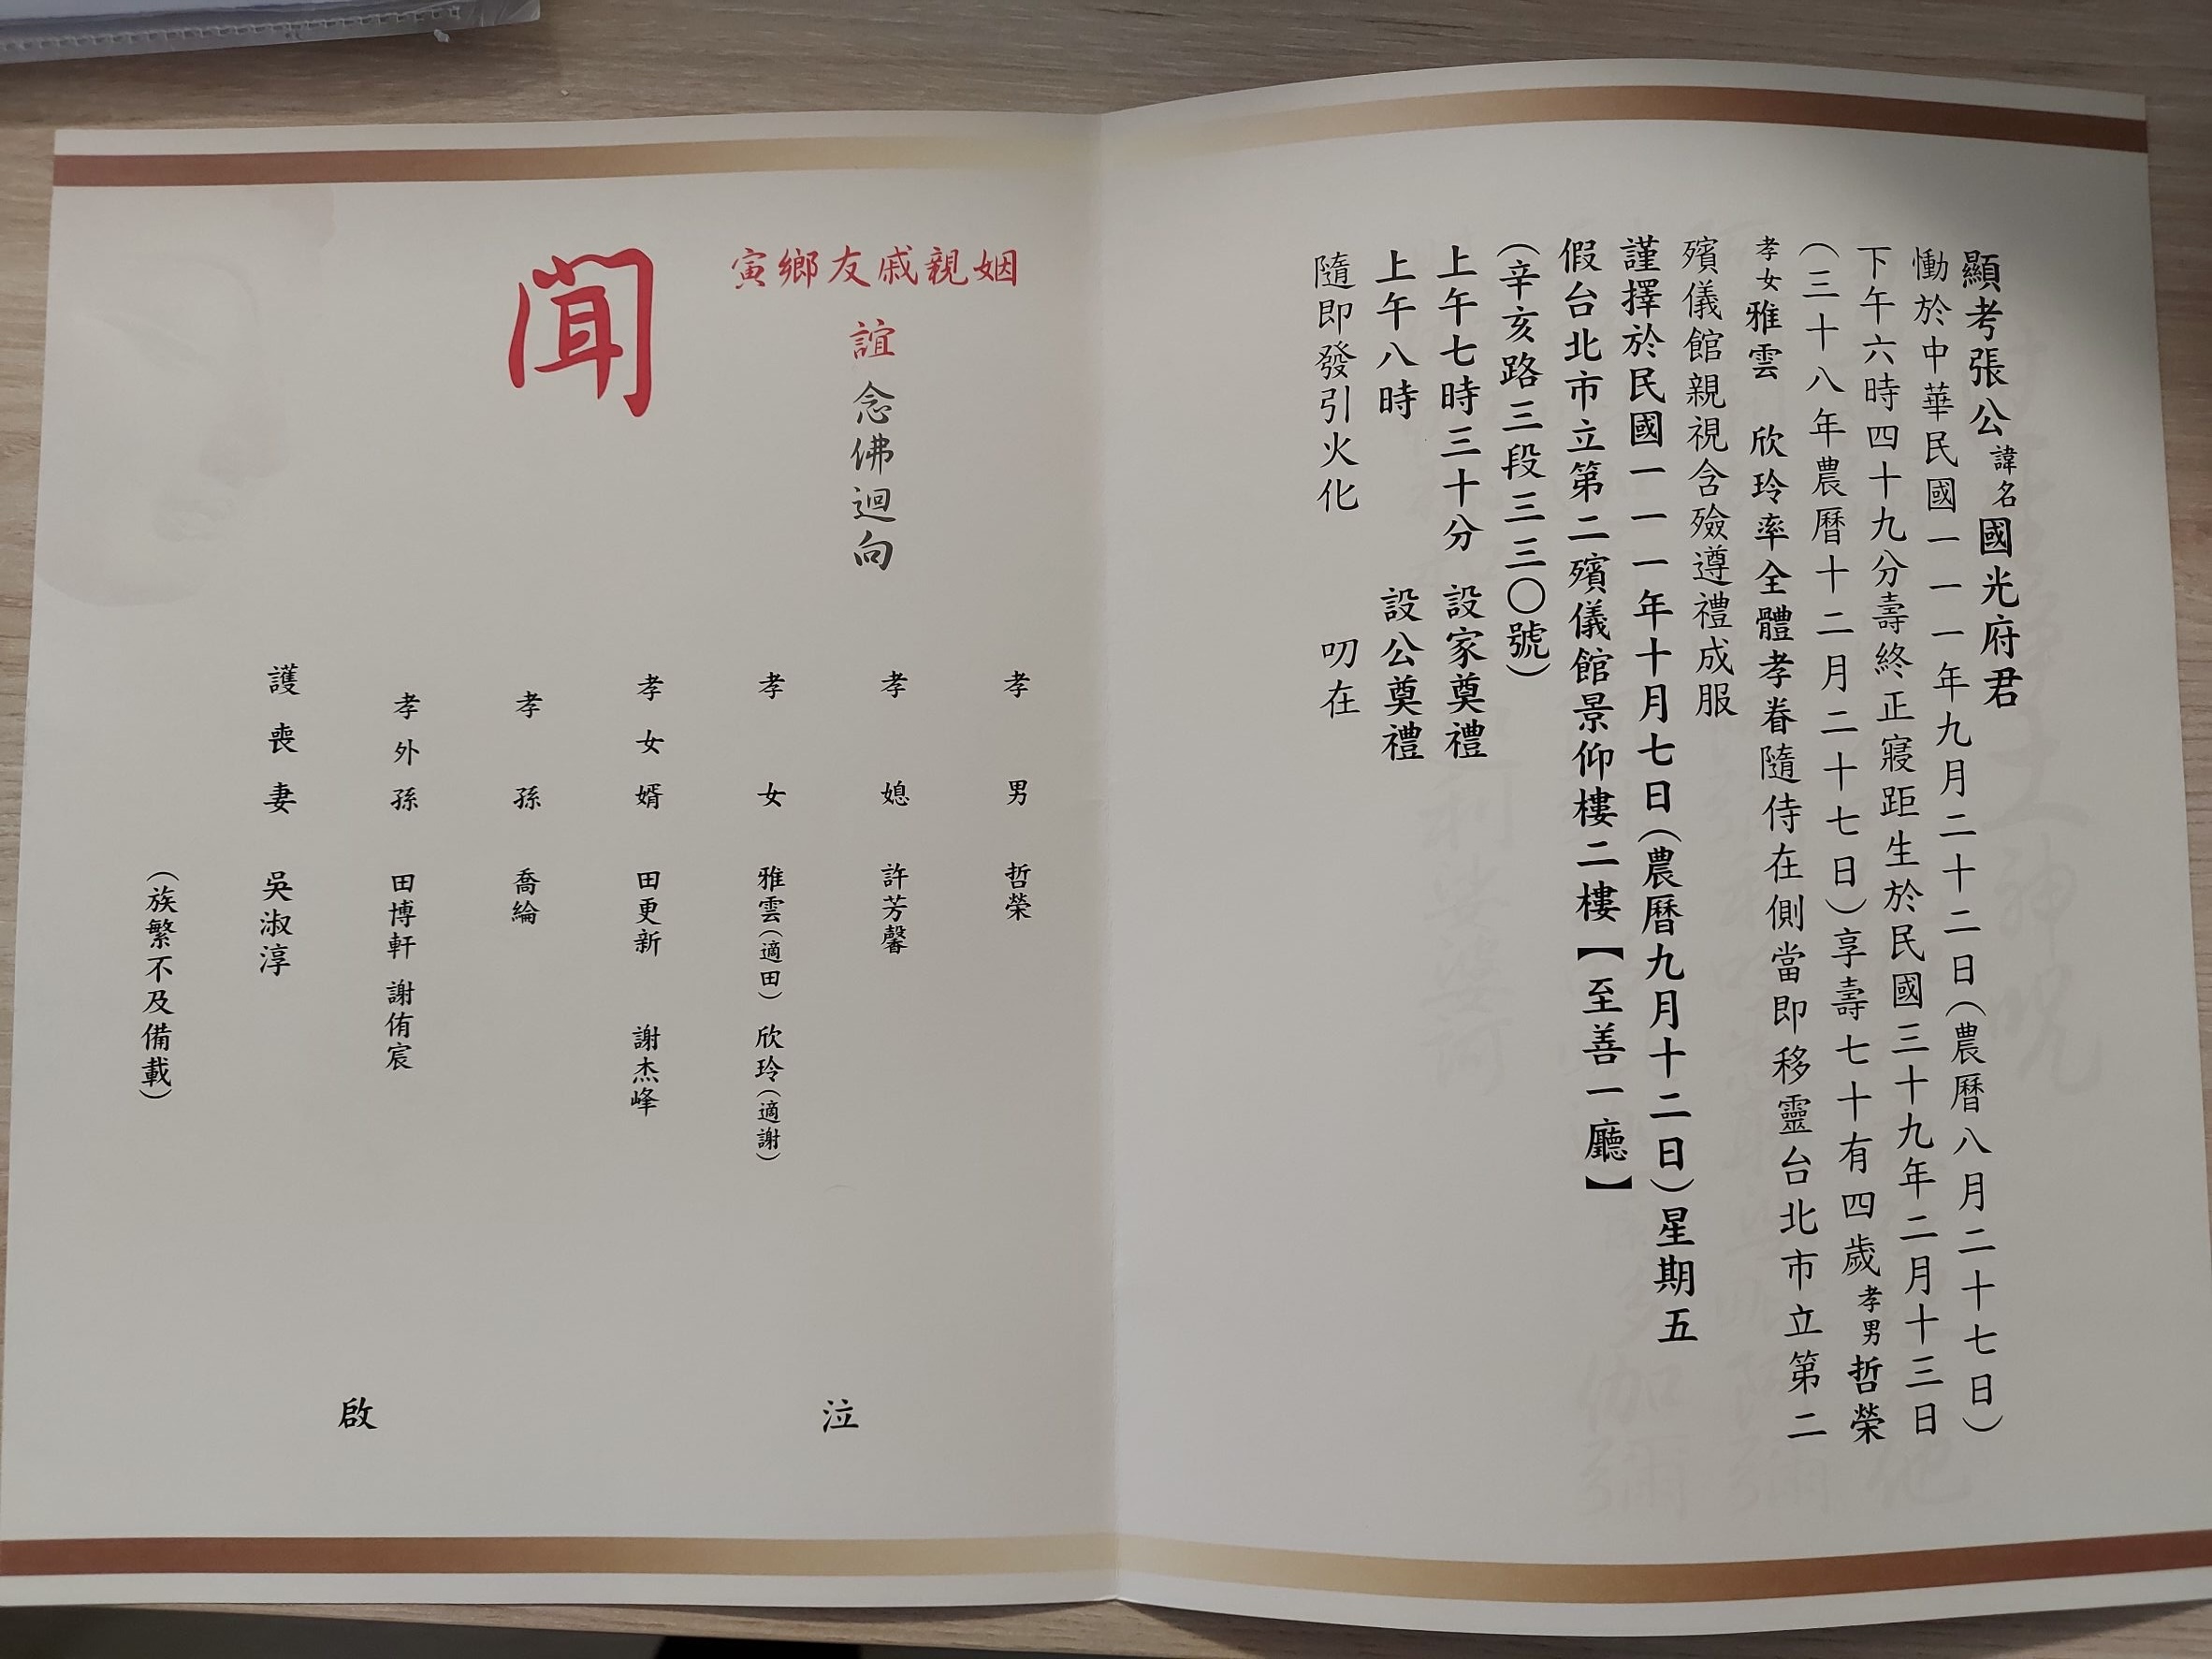 顯考張公諱名國光府君
慟於中華民國一一一年九月二十二日（農曆八月二十七日）
下午六時四十九分壽終正寢距生於民國三十九年二月十三日
（三十八年農曆十二月二十七日）享壽七十有四歲孝男哲榮
孝女雅雲　欣玲率全體孝眷隨侍在側當即移靈台北市立第二
殯儀館親視含殮遵禮成服
謹擇於民國一一一年十月七日（農曆九月十二日）星期五
假台北市立第二殯儀館景仰樓二樓【至善一廳】
（辛亥路三段三三〇號）
上午七時三十分　設家奠禮
上午八時　設公奠禮
隨即發引火化　叨在
姻親戚友鄉寅
誼　念佛迴向
聞
孝男　哲榮
孝媳　許芳馨
孝女　雅雲（適田）　欣玲（適謝）
孝女婿　田更新　謝杰峰
孝孫　喬綸
孝外孫　田博軒　謝侑宸
護喪妻　吳淑淳
（族繁不及備載）
泣　啟